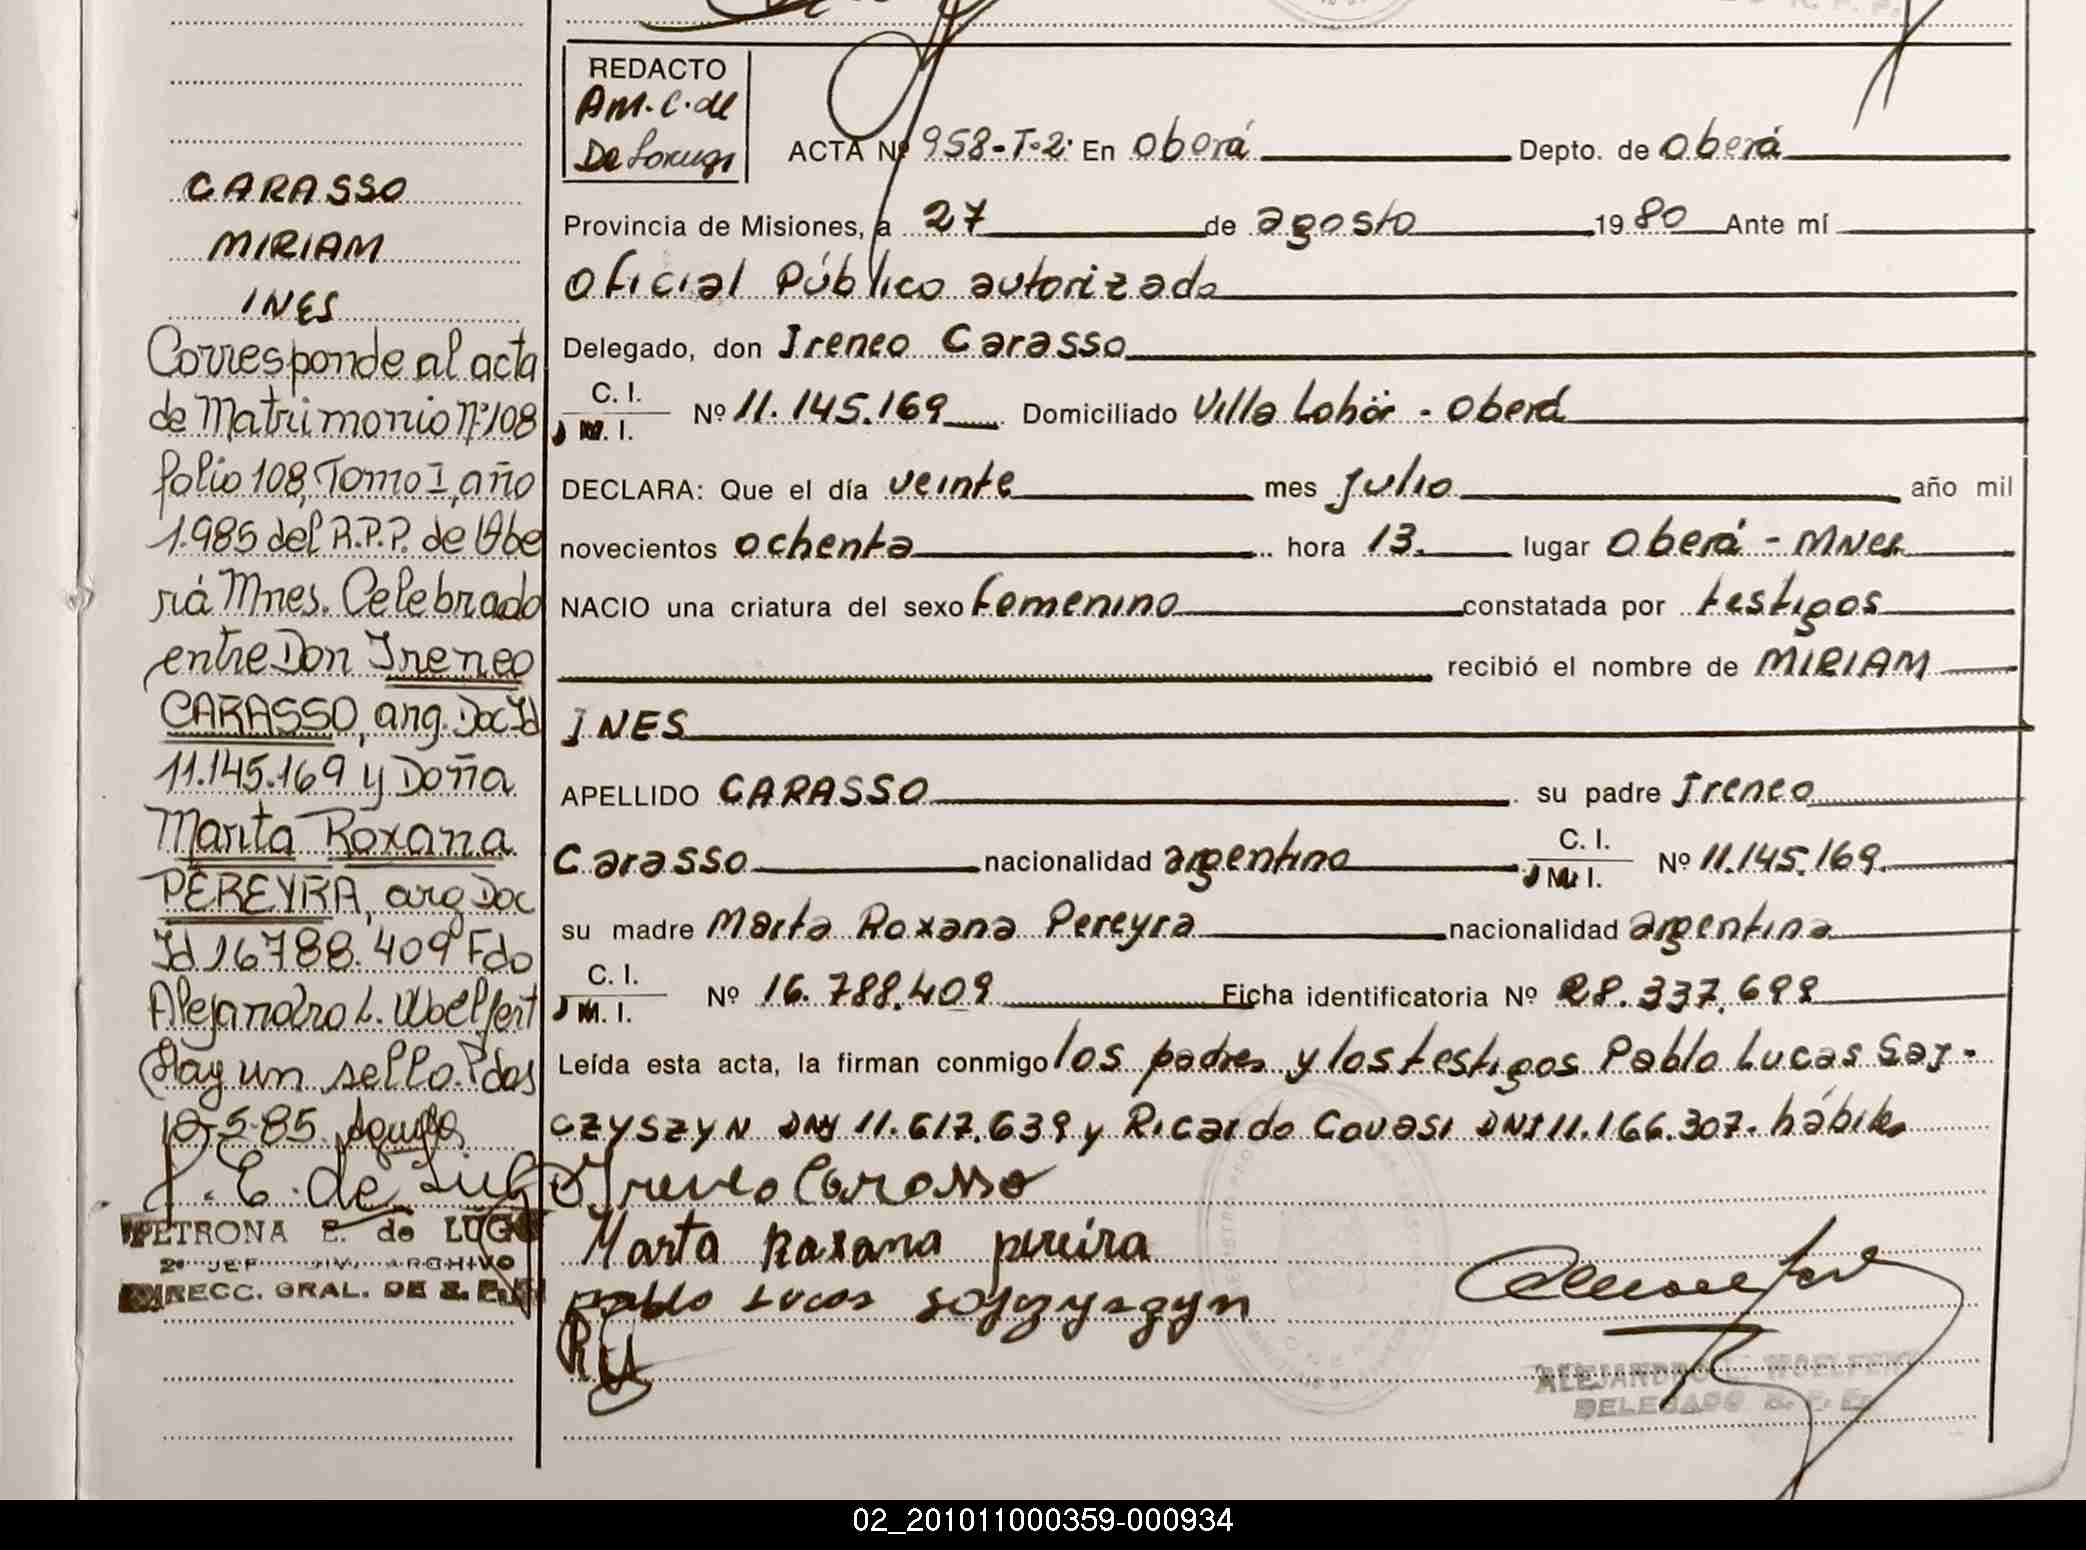 CARASSO
MIRIAM
INES
Corresponde al acta
de Matrimonio Nº 108
folio 108, Tomo I, año
1.985 del R.P.P. de Obe
rá Mnes. Celebrado
entre Don Ireneo
CARASSO, arg. Doc Id
11.145.169 y Doña
Marita Roxana
PEREYRA, arg Doc
Id 16788.409 Fdo
Alejandro L. Woelfert
Hay un sello. Pdas
12-5-85
P. E. de Lugo
PETRONA E. de LUGO
2º JEF DIV. ARCHIVO
DIRECC. GRAL. DE R. P.
REDACTO
AM. C. de
De
ACTA Nº 958-T-2. En Oberá Depto. de Oberá
Provincia de Misiones, a 27 de agosto 1980 Ante mí
Oficial Público autorizado
Delegado, don Ireneo Carasso
C. I.
M. I. Nº 11.145.169 Domiciliado Villa Lohör - Oberá
DECLARA: Que el día veinte mes julio año mil
novecientos ochenta hora 13. lugar Oberá - Mnes
NACIO una criatura del sexo femenino constatada por testigos
recibió el nombre de MIRIAM
INES
APELLIDO CARASSO su padre Ireneo
Carasso nacionalidad argentino C. I.
M. I. Nº 11.145.169.
su madre Marta Roxana Pereyra nacionalidad argentina
C. I.
M. I. Nº 16.788.409 Ficha identificatoria Nº 28.337.699
Leída esta acta, la firman conmigo los padres y los testigos Pablo Lucas Saj-
CZYSZYN DNI 11.617.639 y Ricardo Covasi DNI 11.166.307. hábiles
Ireneo Carasso
Marta Roxana pereira
pablo Lucas sojczyszyn
ALEJANDRO L. WOELFERT
DELEGADO R. P. P.
02_201011000359-000934